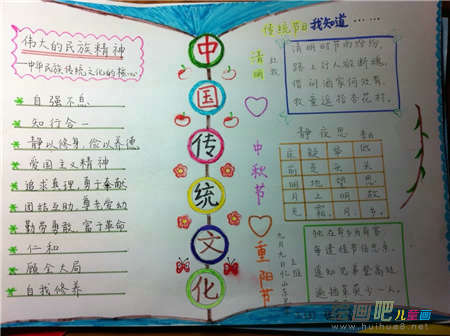 伟大的民族精神
中华民族传统文化的核心
自强不息
知行合一
静以修身,俭以养德
爱国主义精神
追求真理,勇于奉献
团结互助,尊老爱幼
勤劳勇敢,富于革命
仁和
顾全大局
自我修养
中
国
传
统
文
化
传统节日我知道……
清明
杜牧
清明时节雨纷纷,
路上行人欲断魂。
借问酒家何处有,
牧童遥指杏花村。
中秋节
静夜思
床 疑 举 低
前 是 头 头
明 地 望 思
月 上 明 故
光 霜 月 乡
重阳节
九月九日忆山东兄弟
王维
独在异乡为异客,
每逢佳节倍思亲。
遥知兄弟登高处,
遍插茱萸少一人。
绘画吧 儿童画
www.huihua8.com